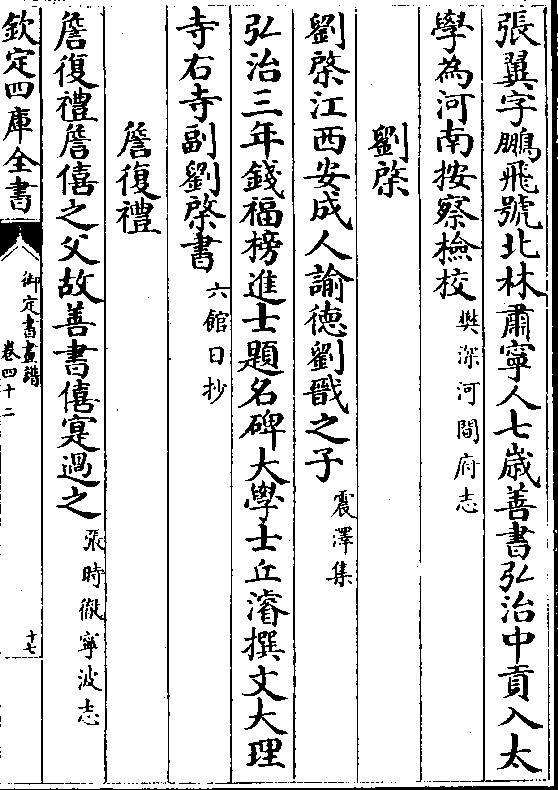 張翼字鵬飛號北林肅寧人七歳善書弘治中貢入太
學為河南按察檢校樊深河間府志
劉棨
劉棨江西安成人諭德劉戩之子震澤集
弘治三年錢福榜進士題名碑大學士丘濬撰文大理
寺右寺副劉棨書六館日抄
詹復禮
詹復禮詹僖之父故善書僖寔過之張時徹寧波志
欽定四庫全書
御定書畫譜
卷四十二
十七